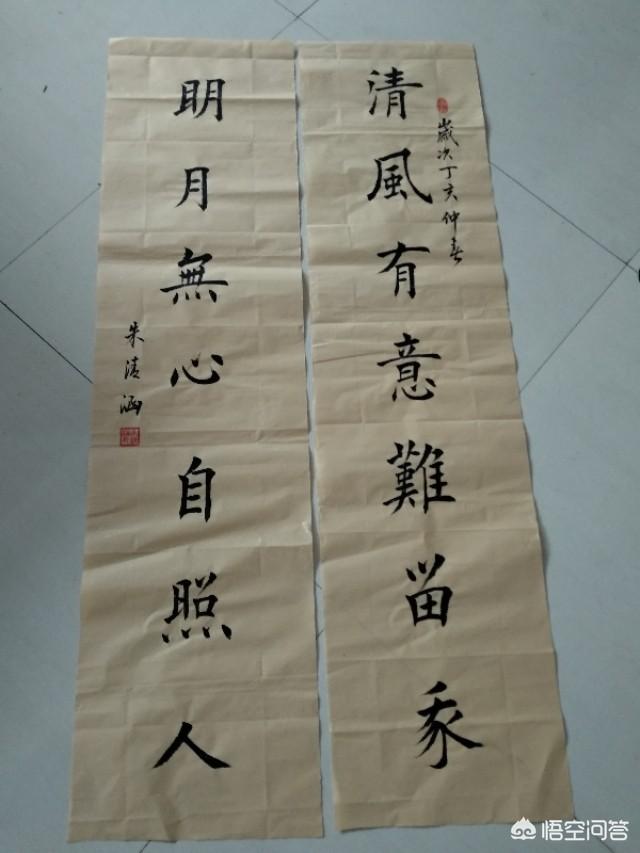 清風有意難留我
歲次丁亥仲春
明月無心自照人
朱清涵
悟空问答